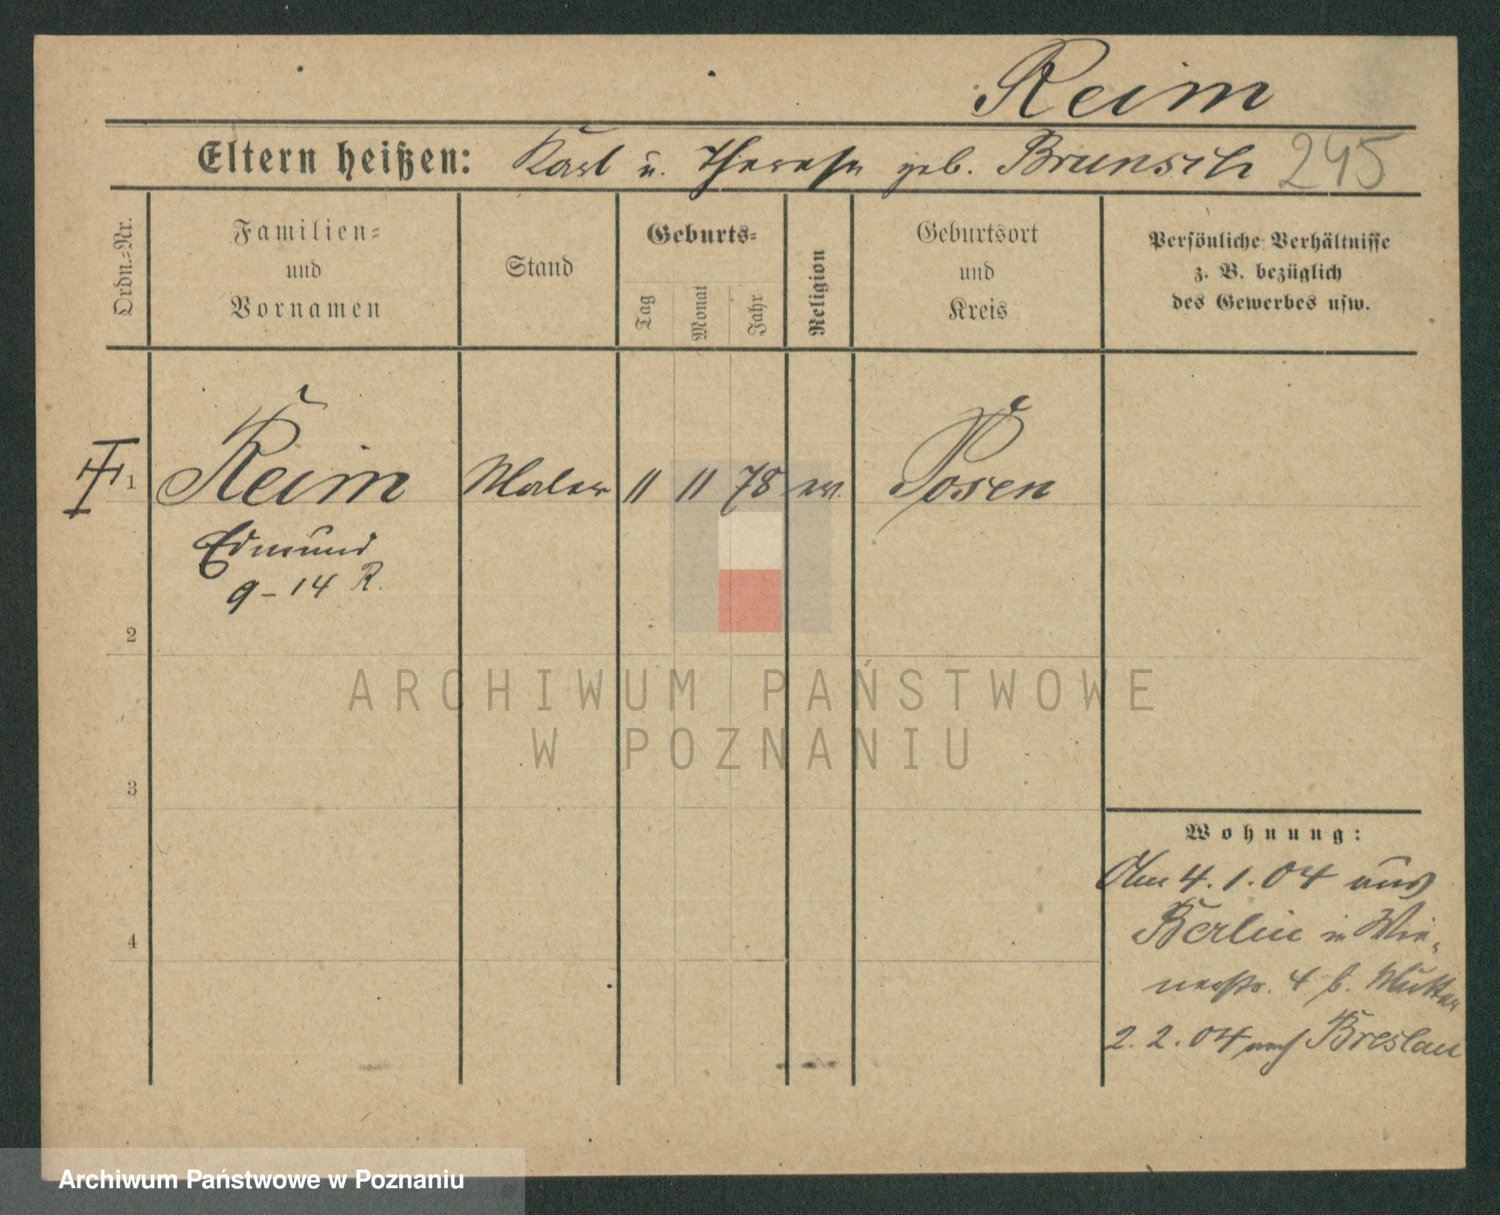 Reim
Eltern heißen: Karl u. Therese geb. Brunsch 245
Ordn.=Nr.
Familien=
und
Vornamen
Stand
Geburts=
Tag
Monat
Jahr
Religion
Geburtsort
und
Kreis
Persönliche Verhältnisse
z. B. bezüglich
des Gewerbes usw.
1 Reim Maler 11 11 78 ev. Posen
Edmund
9-14 R.
2
3
4
Wohnung:
4.1.04 aus
Berlin in Wie-
nerstr. 4 b. Mutter
2.2.04 nach Breslau
ARCHIWUM PAŃSTWOWE
W POZNANIU
Archiwum Państwowe w Poznaniu